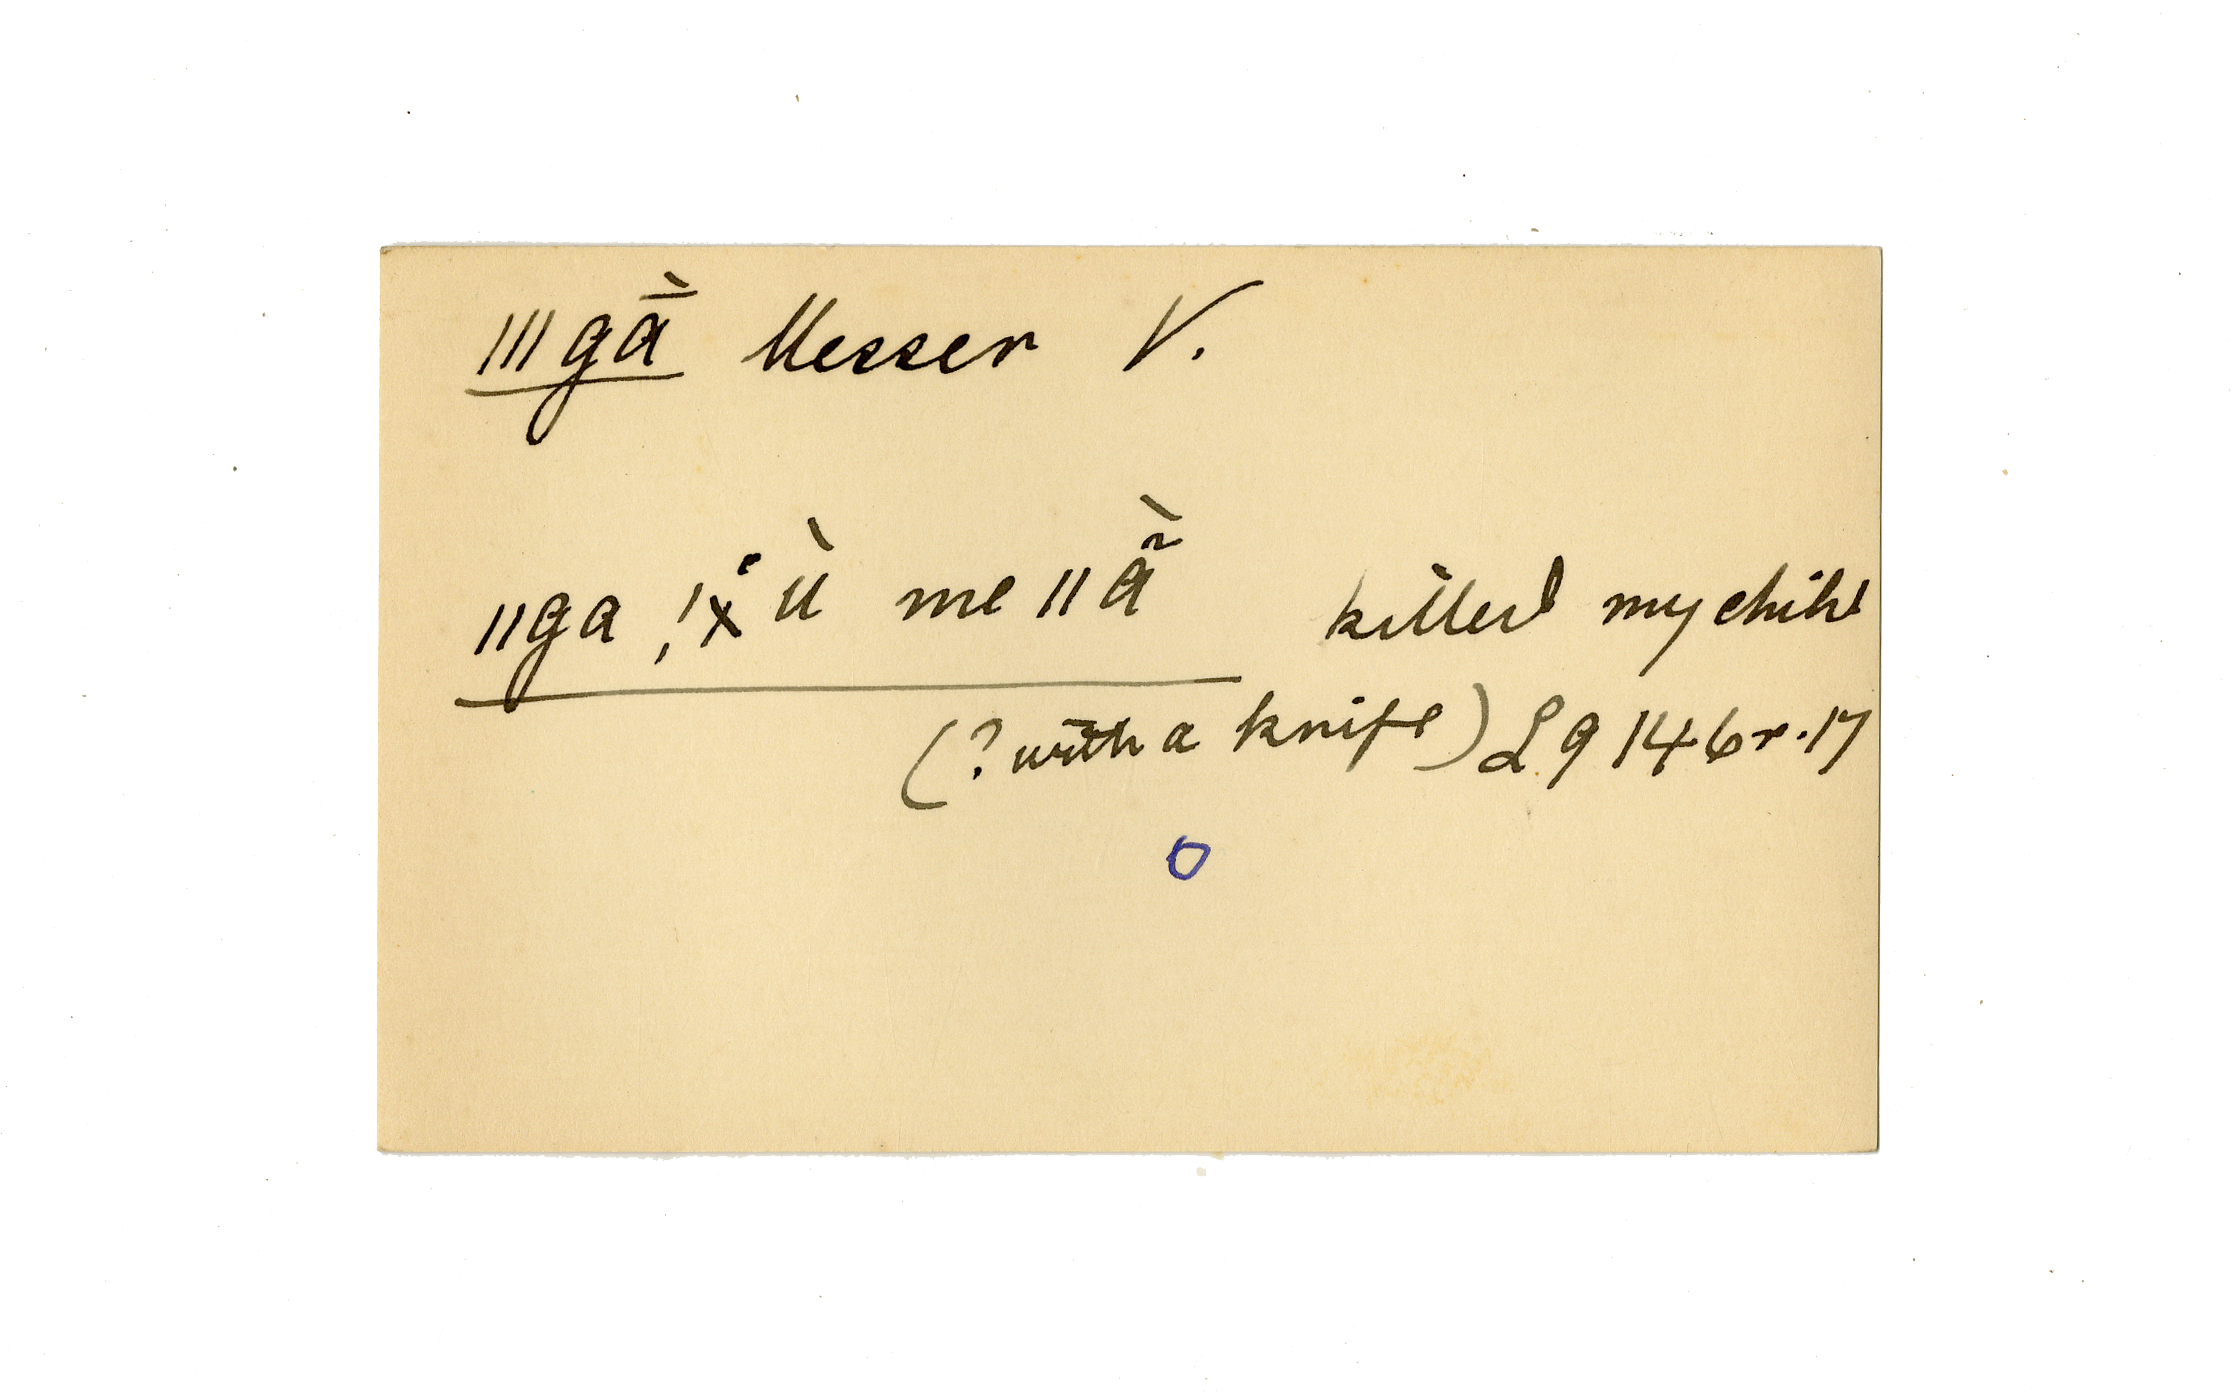 |||gā̀ Messer V.
||ga ,!ẋ ù me ||ã̀ killed my child
(? with a knife) L9 146r.17
o